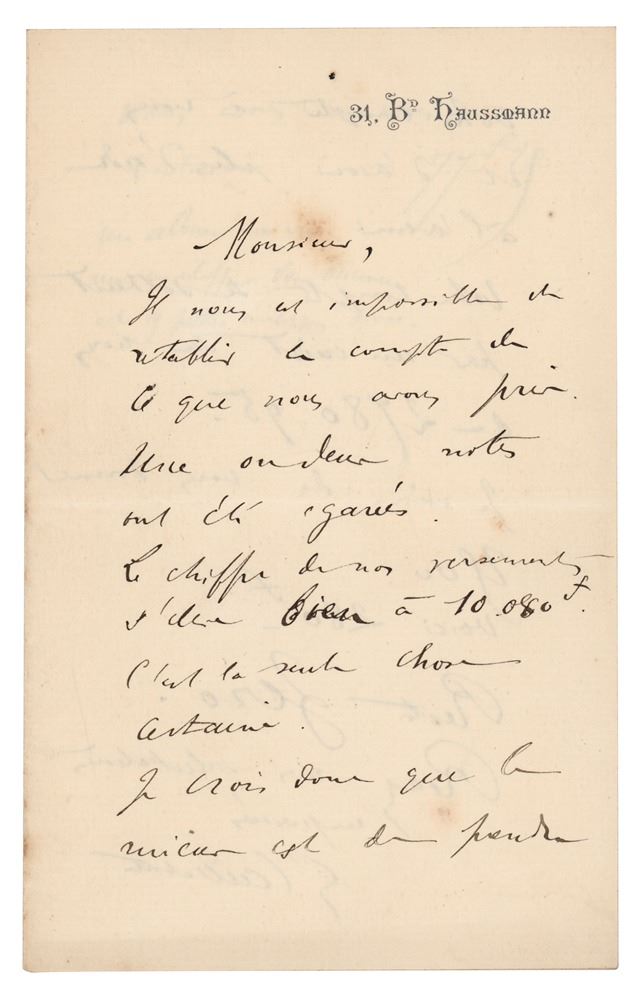 31. BD HAUSSMANN
Monsieur,
Il nous est impossible de
rétablir le compte de
ce que nous avons pris.
Une ou deux notes
ont été égarées.
Le chiffre de nos versements
s'élève bien à 10.080 f.
C'est la seule chose
certaine.
Je crois donc que le
mieux est de prendre